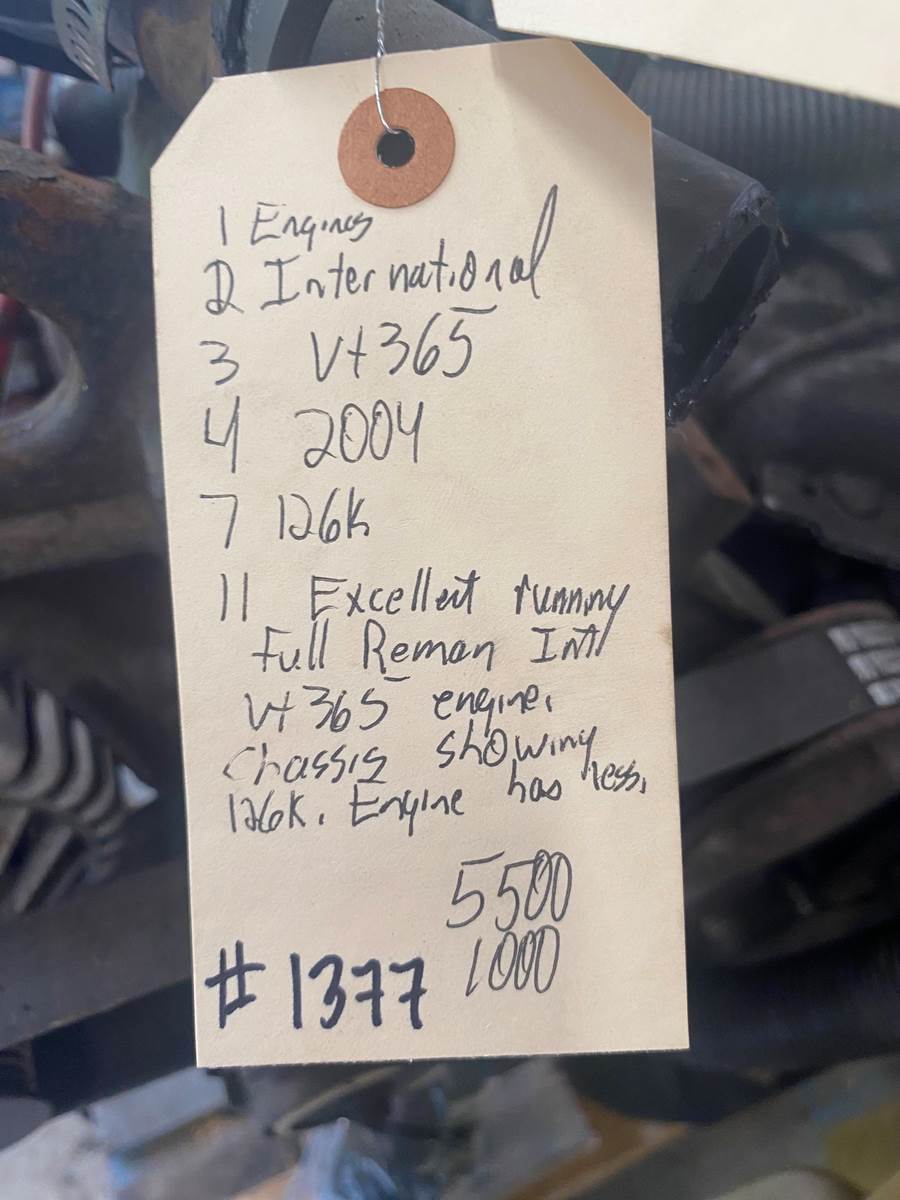 1 Engines
2 International
3 Vt365
4 2004
7 126k
11 Excellent running
Full Reman Intl
Vt365 engine.
Chassis showing
126k. Engine has less.
5500
1000
# 1377